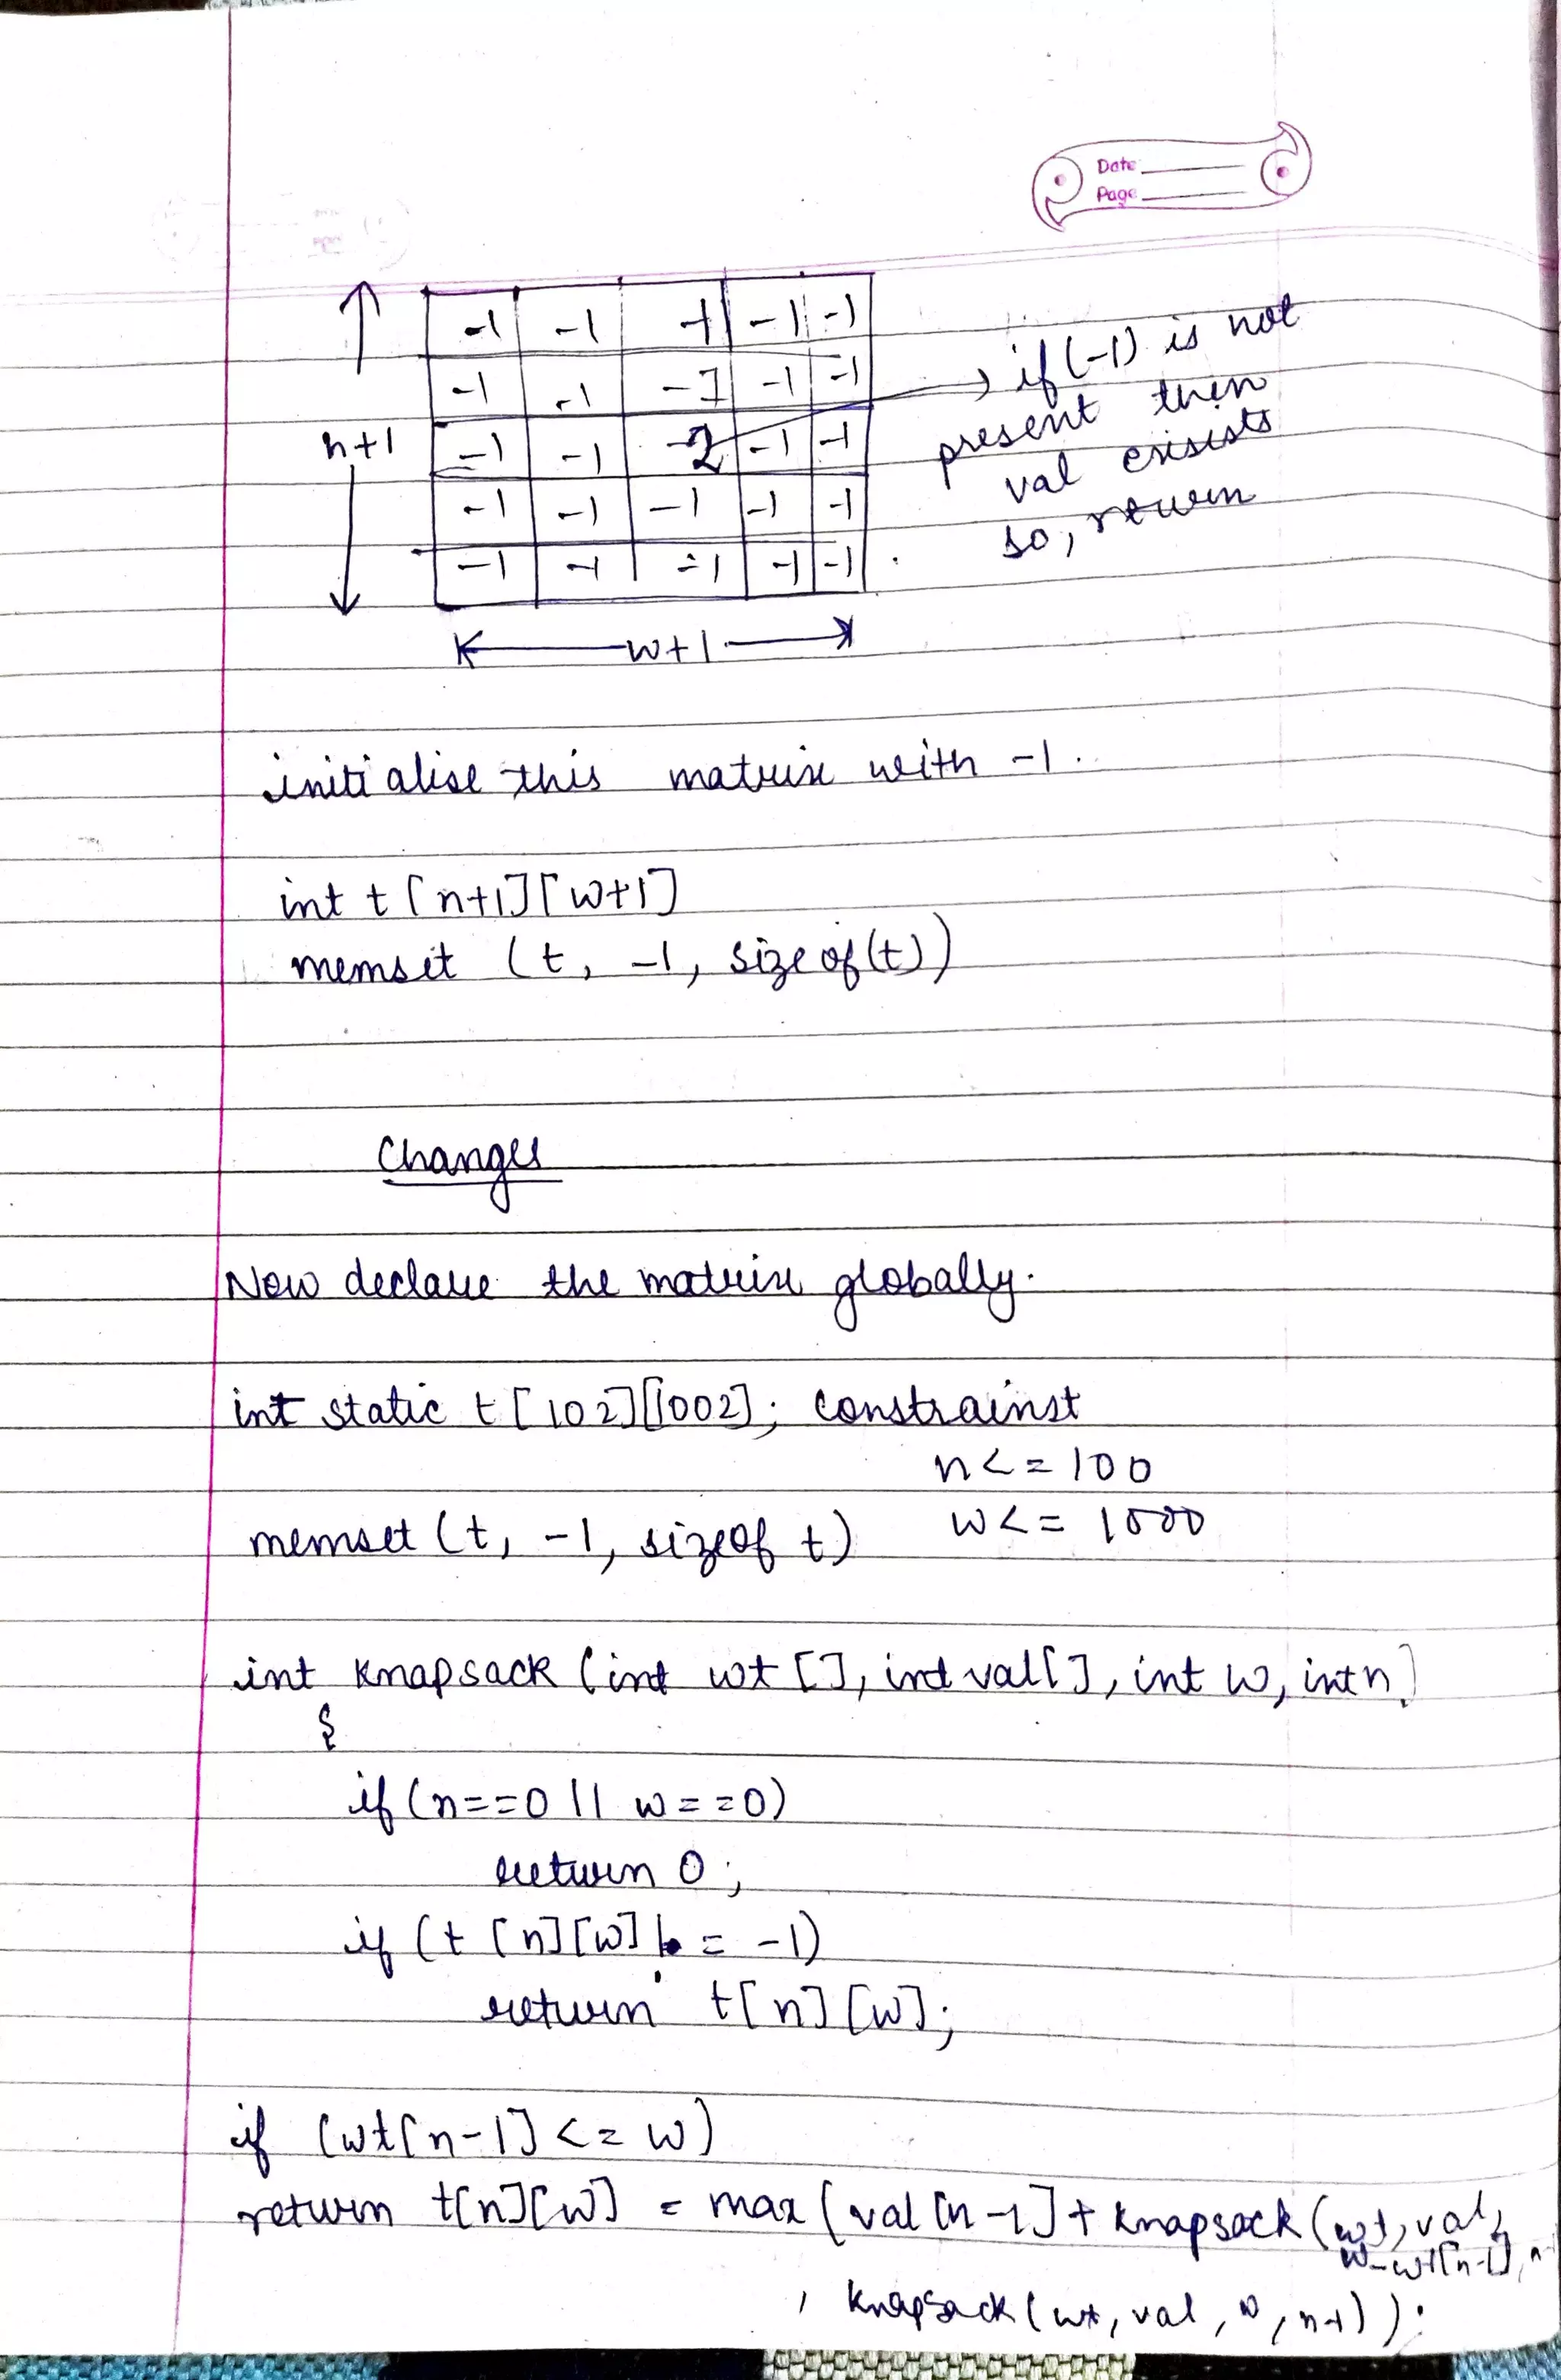 Date
Page
-1 -1 -1 -1 -1
-1 -1 -1 -1 -1
n+1 -1 -1 2 -1 -1
-1 -1 -1 -1 -1
-1 -1 -1 -1 -1
w+1
→ if (-1) is not
present then
val exisists
so, return
initialise this matrix with -1.
int t[n+1][w+1]
memset (t, -1, sizeof(t))
Changes
Now declare the matrix globally.
int static t[102][1002]; constrainst
n<=100
w<=1000
memset (t, -1, sizeof t)
int knapsack (int wt [], int val[], int w, int n)
{
if (n==0 || w==0)
return 0;
if (t [n][w] != -1)
return t[n][w];
if (wt[n-1] <= w)
return t[n][w] = max (val [n-1] + knapsack (wt, val,
w-wt[n-1], n-
, knapsack (wt, val, w, n-1));